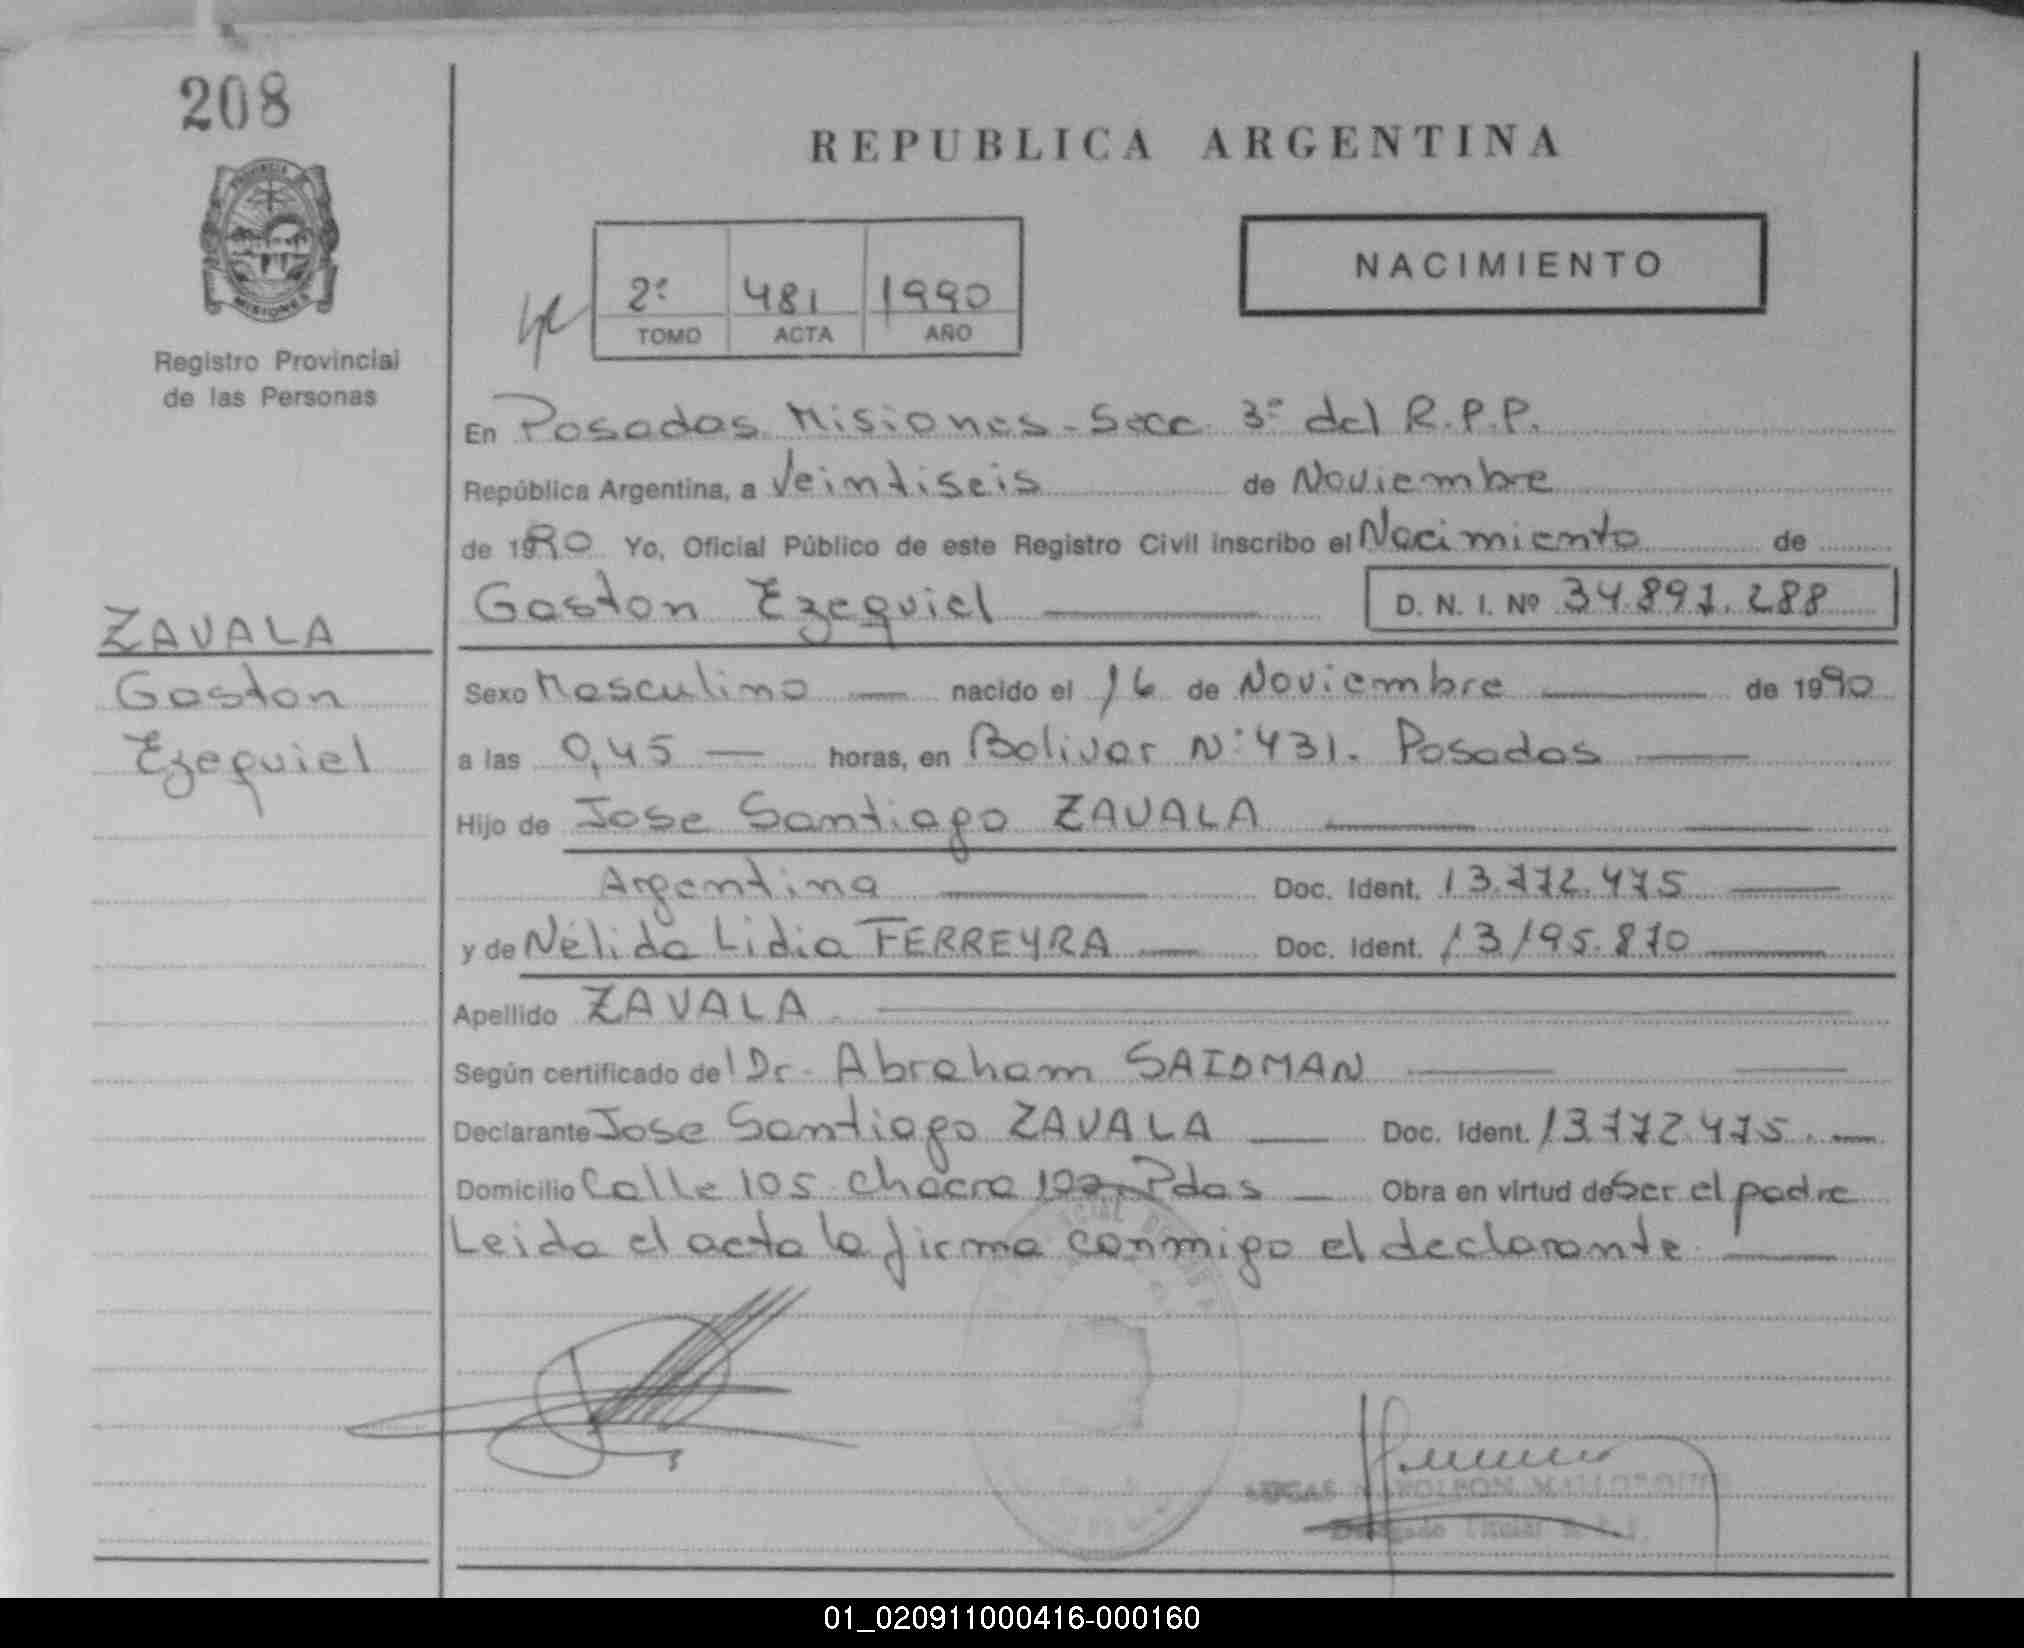 208
REPUBLICA ARGENTINA
NACIMIENTO
PROVINCIA DE
MISIONES
Registro Provincial
de las Personas
2º 481 1990
TOMO ACTA AÑO
En Posadas Misiones - Secc 3º del R.P.P.
República Argentina, a Veintiseis de Noviembre
de 1990 Yo, Oficial Público de este Registro Civil inscribo el Nacimiento de
Gaston Ezequiel D. N. I. Nº 34.891.288
ZAVALA
Gaston
Ezequiel
Sexo Masculino nacido el 16 de Noviembre de 1990
a las 0,45 horas, en Bolivar Nº 431. Posadas
Hijo de Jose Santiago ZAVALA
Argentina Doc. Ident. 13.772.475
y de Nélida Lidia FERREYRA Doc. Ident. 13195.870
Apellido ZAVALA
Según certificado del Dr. Abraham SAIDMAN
Declarante Jose Santiago ZAVALA Doc. Ident. 13.772.475.
Domicilio Calle 105 chacra Pdas Obra en virtud de Ser el padre
Leida el acta la firma conmigo el declarante
NAPOLEON
Delegado Titular
01_020911000416-000160